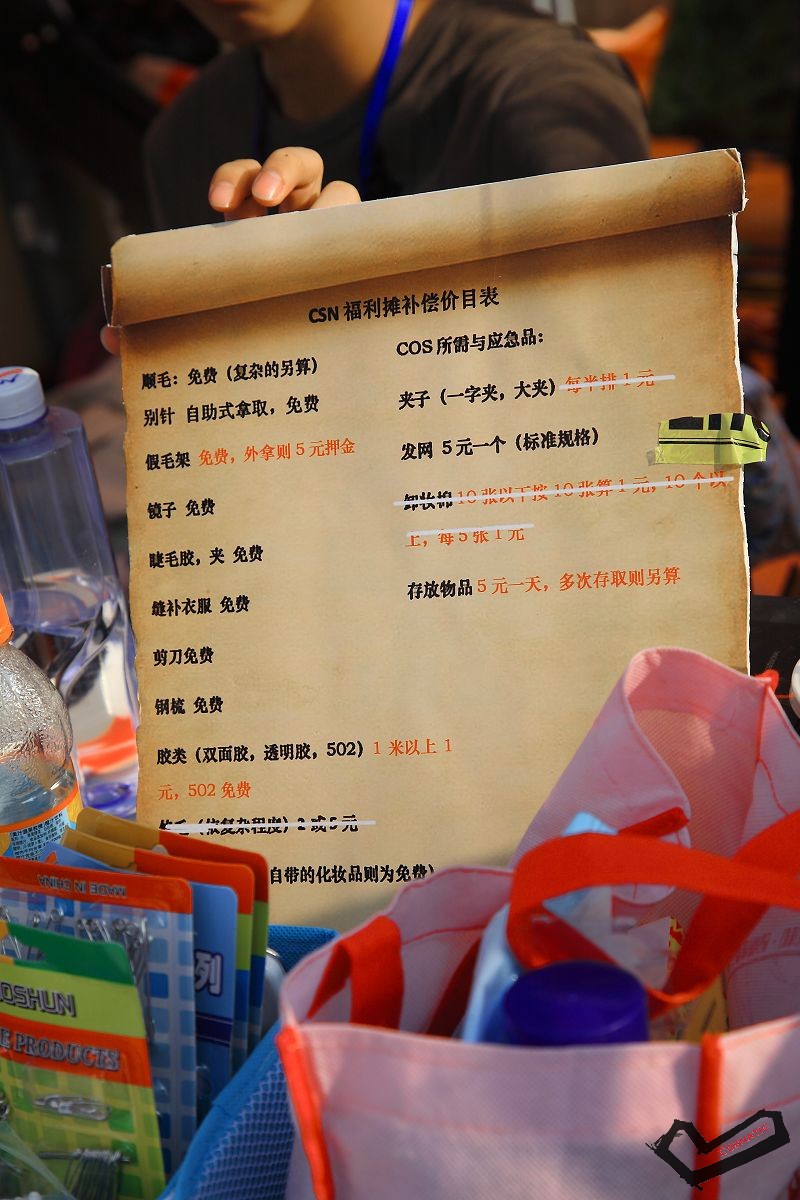 CSN 福利摊补偿价目表
顺毛：免费（复杂的另算）
别针 自助式拿取，免费
假毛架 免费，外拿则 5 元押金
镜子 免费
睫毛胶，夹 免费
缝补衣服 免费
剪刀免费
钢梳 免费
胶类（双面胶，透明胶，502）1 米以上 1
元，502 免费
毛（依复杂程度）2 或 5 元
自带的化妆品则为免费）
COS 所需与应急品：
夹子（一字夹，大夹）每半排 1 元
发网 5 元一个（标准规格）
卸妆棉 10 张以下按 10 张算 1 元，10 个以
上，每 5 张 1 元
存放物品 5 元一天，多次存取则另算
MADE IN CHINA
列
OSHUN
E PRODUCTS